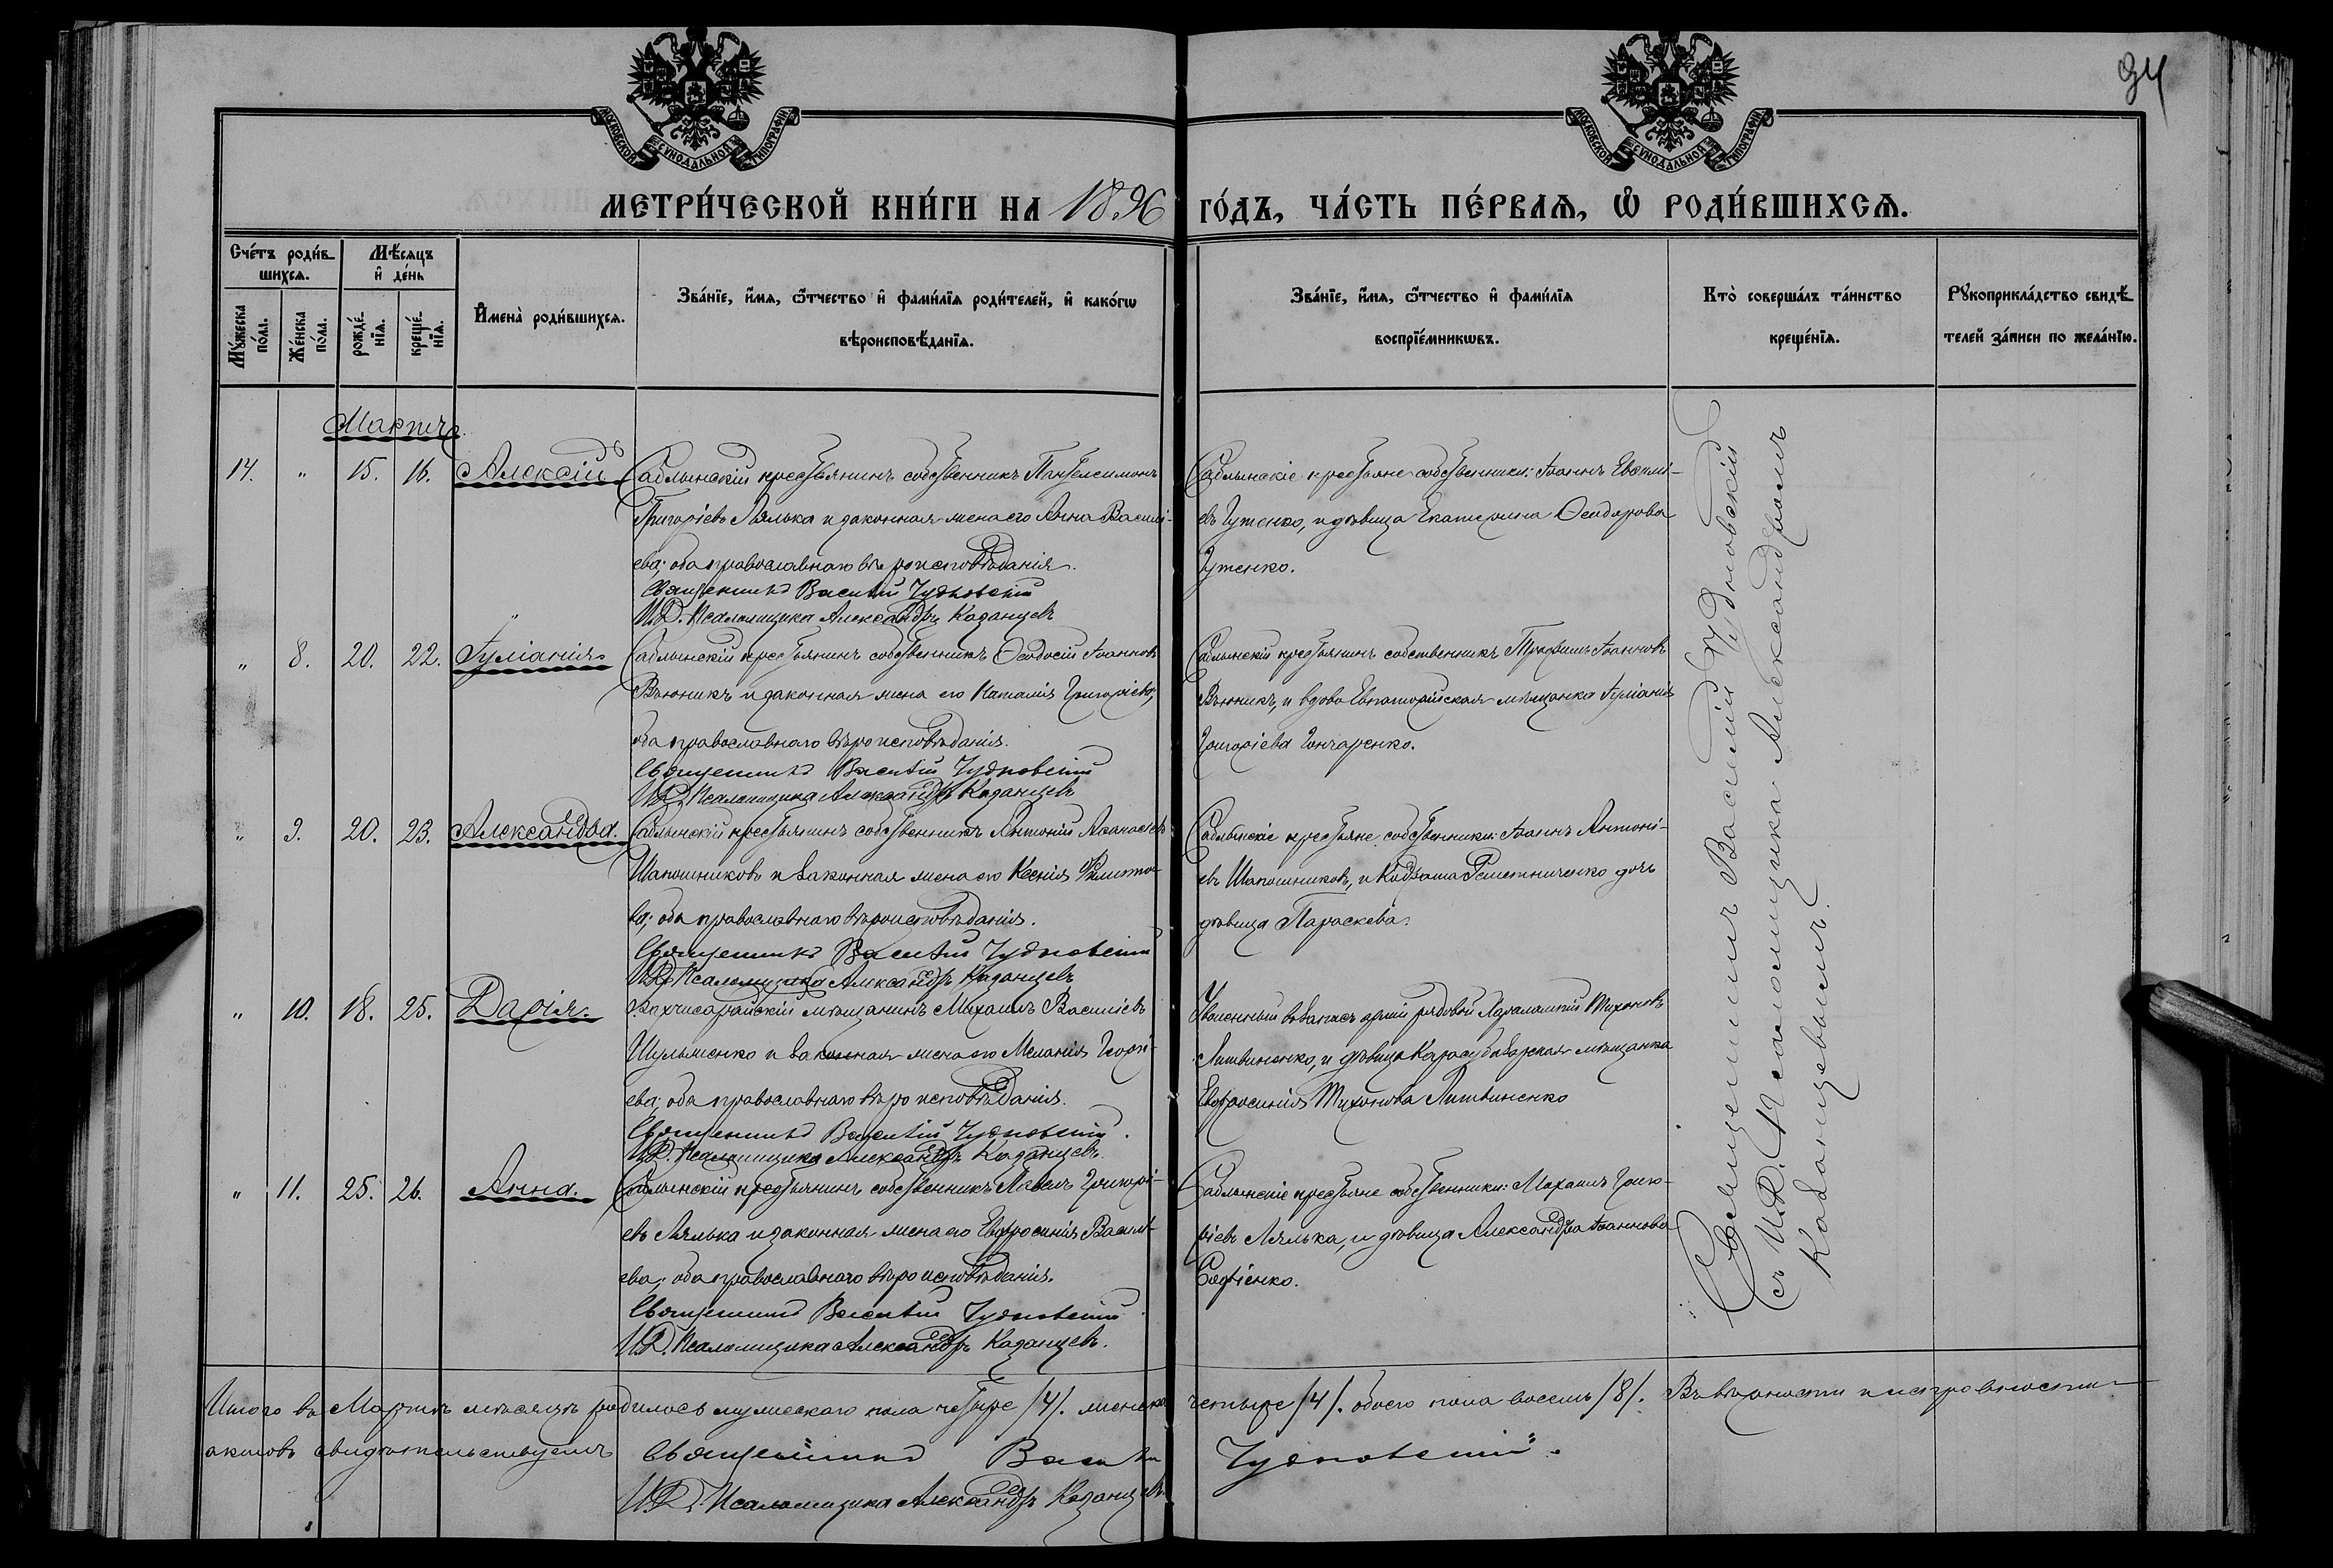 94
МОСКОВСКОЙ СѴНОДАЛЬНОЙ ТИПОГРАФІИ
МОСКОВСКОЙ СѴНОДАЛЬНОЙ ТИПОГРАФІИ
МЕТРИ́ЧЕСКОЙ КНИ́ГИ НА 1896 ГО́ДЪ, ЧА́СТЬ ПЕ́РВАЯ, Ѡ҆ РОДИ́ВШИХСЯ.
Сче́тъ роди́в-
шихся.
Мꙋ́жеска по́ла.
Же́нска по́ла.
Мѣ́сяцъ
и҆ де́нь
рожде́-
нїя.
креще́-
нїя.
И҆мена̀ роди́вшихся.
Зва́нїе, и҆́мя, ѻ҆́тчество и҆ фами́лїя роди́телей, и҆ како́гѡ
вѣроисповѣ́данїя.
Зва́нїе, и҆́мя, ѻ҆́тчество и҆ фами́лїя
воспрїе́мникѡвъ.
Кто̀ соверша́лъ та́инство
креще́нїя.
Рꙋкоприкла́дство свидѣ́-
телей за́писи по жела́нїю.
Мартъ
14. " 15. 16. Алексій Саблынскій крестьянинъ собственникъ Пантелеимонъ
Григоріевъ Лялька и законная жена его Анна Василі-
ева; оба православнаго вѣроисповѣданія.
Священникъ Василій Чудновскій
И.Д. Псаломщика Александръ Казанцевъ
Саблынскіе крестьяне собственники: Іоаннъ Евѳимі-
евъ Гутенко, и дѣвица Екатерина Ѳеодорова
Гутенко.
" 8. 20. 22. Іуліанія Саблынскій крестьянинъ собственникъ Ѳеодосій Іоанновъ
Вьюникъ и законная жена его Наталія Григоріева,
оба православнаго вѣроисповѣданія.
Священникъ Василій Чудновскій
И.Д. Псаломщика Александръ Казанцевъ
Саблынскій крестьянинъ собственникъ Трофимъ Іоанновъ
Вьюникъ, и вдова Евпаторійская мѣщанка Іуліанія
Григоріева Гончаренко.
" 9. 20. 23. Александра. Саблынскій крестьянинъ собственникъ Антоній Аѳанасіевъ
Шапошниковъ и законная жена его Ксенія Филиппо-
ва; оба православнаго вѣроисповѣданія.
Священникъ Василій Чудновскій
И.Д. Псаломщика Александръ Казанцевъ
Саблынскіе крестьяне собственники: Іоаннъ Антоні-
евъ Шапошниковъ, и Решетниченко дочь
дѣвица Параскева.
" 10. 18. 25. Дарія. Бахчисарайскій мѣщанинъ Михаилъ Василіевъ
Шульженко и законная жена его Меланія Георгі-
ева; оба православнаго вѣроисповѣданія.
Священникъ Василій Чудновскій.
И.Д. Псаломщика Александръ Казанцевъ.
Уволенный въ запасъ арміи рядовой Харалампій Тихоновъ
Литвиненко, и дѣвица Карасубазарская мѣщанка
Евфросинія Тихонова Литвиненко
" 11. 25. 26. Анна. Саблынскій крестьянинъ собственникъ Павелъ Григорі-
евъ Лялька и законная жена его Евфросинія Василі-
ева; оба православнаго вѣроисповѣданія.
Священникъ Василій Чудновскій
И.Д. Псаломщика Александръ Казанцевъ.
Саблынскіе крестьяне собственники: Михаилъ Григо-
ріевъ Лялька, и дѣвица Александра Іоаннова
Софіенко.
Священникъ Василій Чудновскій
съ И.Д. Псаломщика Александромъ
Казанцевымъ.
Итого въ Мартѣ мѣсяцѣ родилось мужескаго пола четыре /4/. женска четыре /4/. обоего пола восемь /8/. Въ вѣрности и исправности
актовъ свидѣтельствуемъ Священникъ Василій Чудновскій.
И.Д. Псаломщика Александръ Казанцевъ.